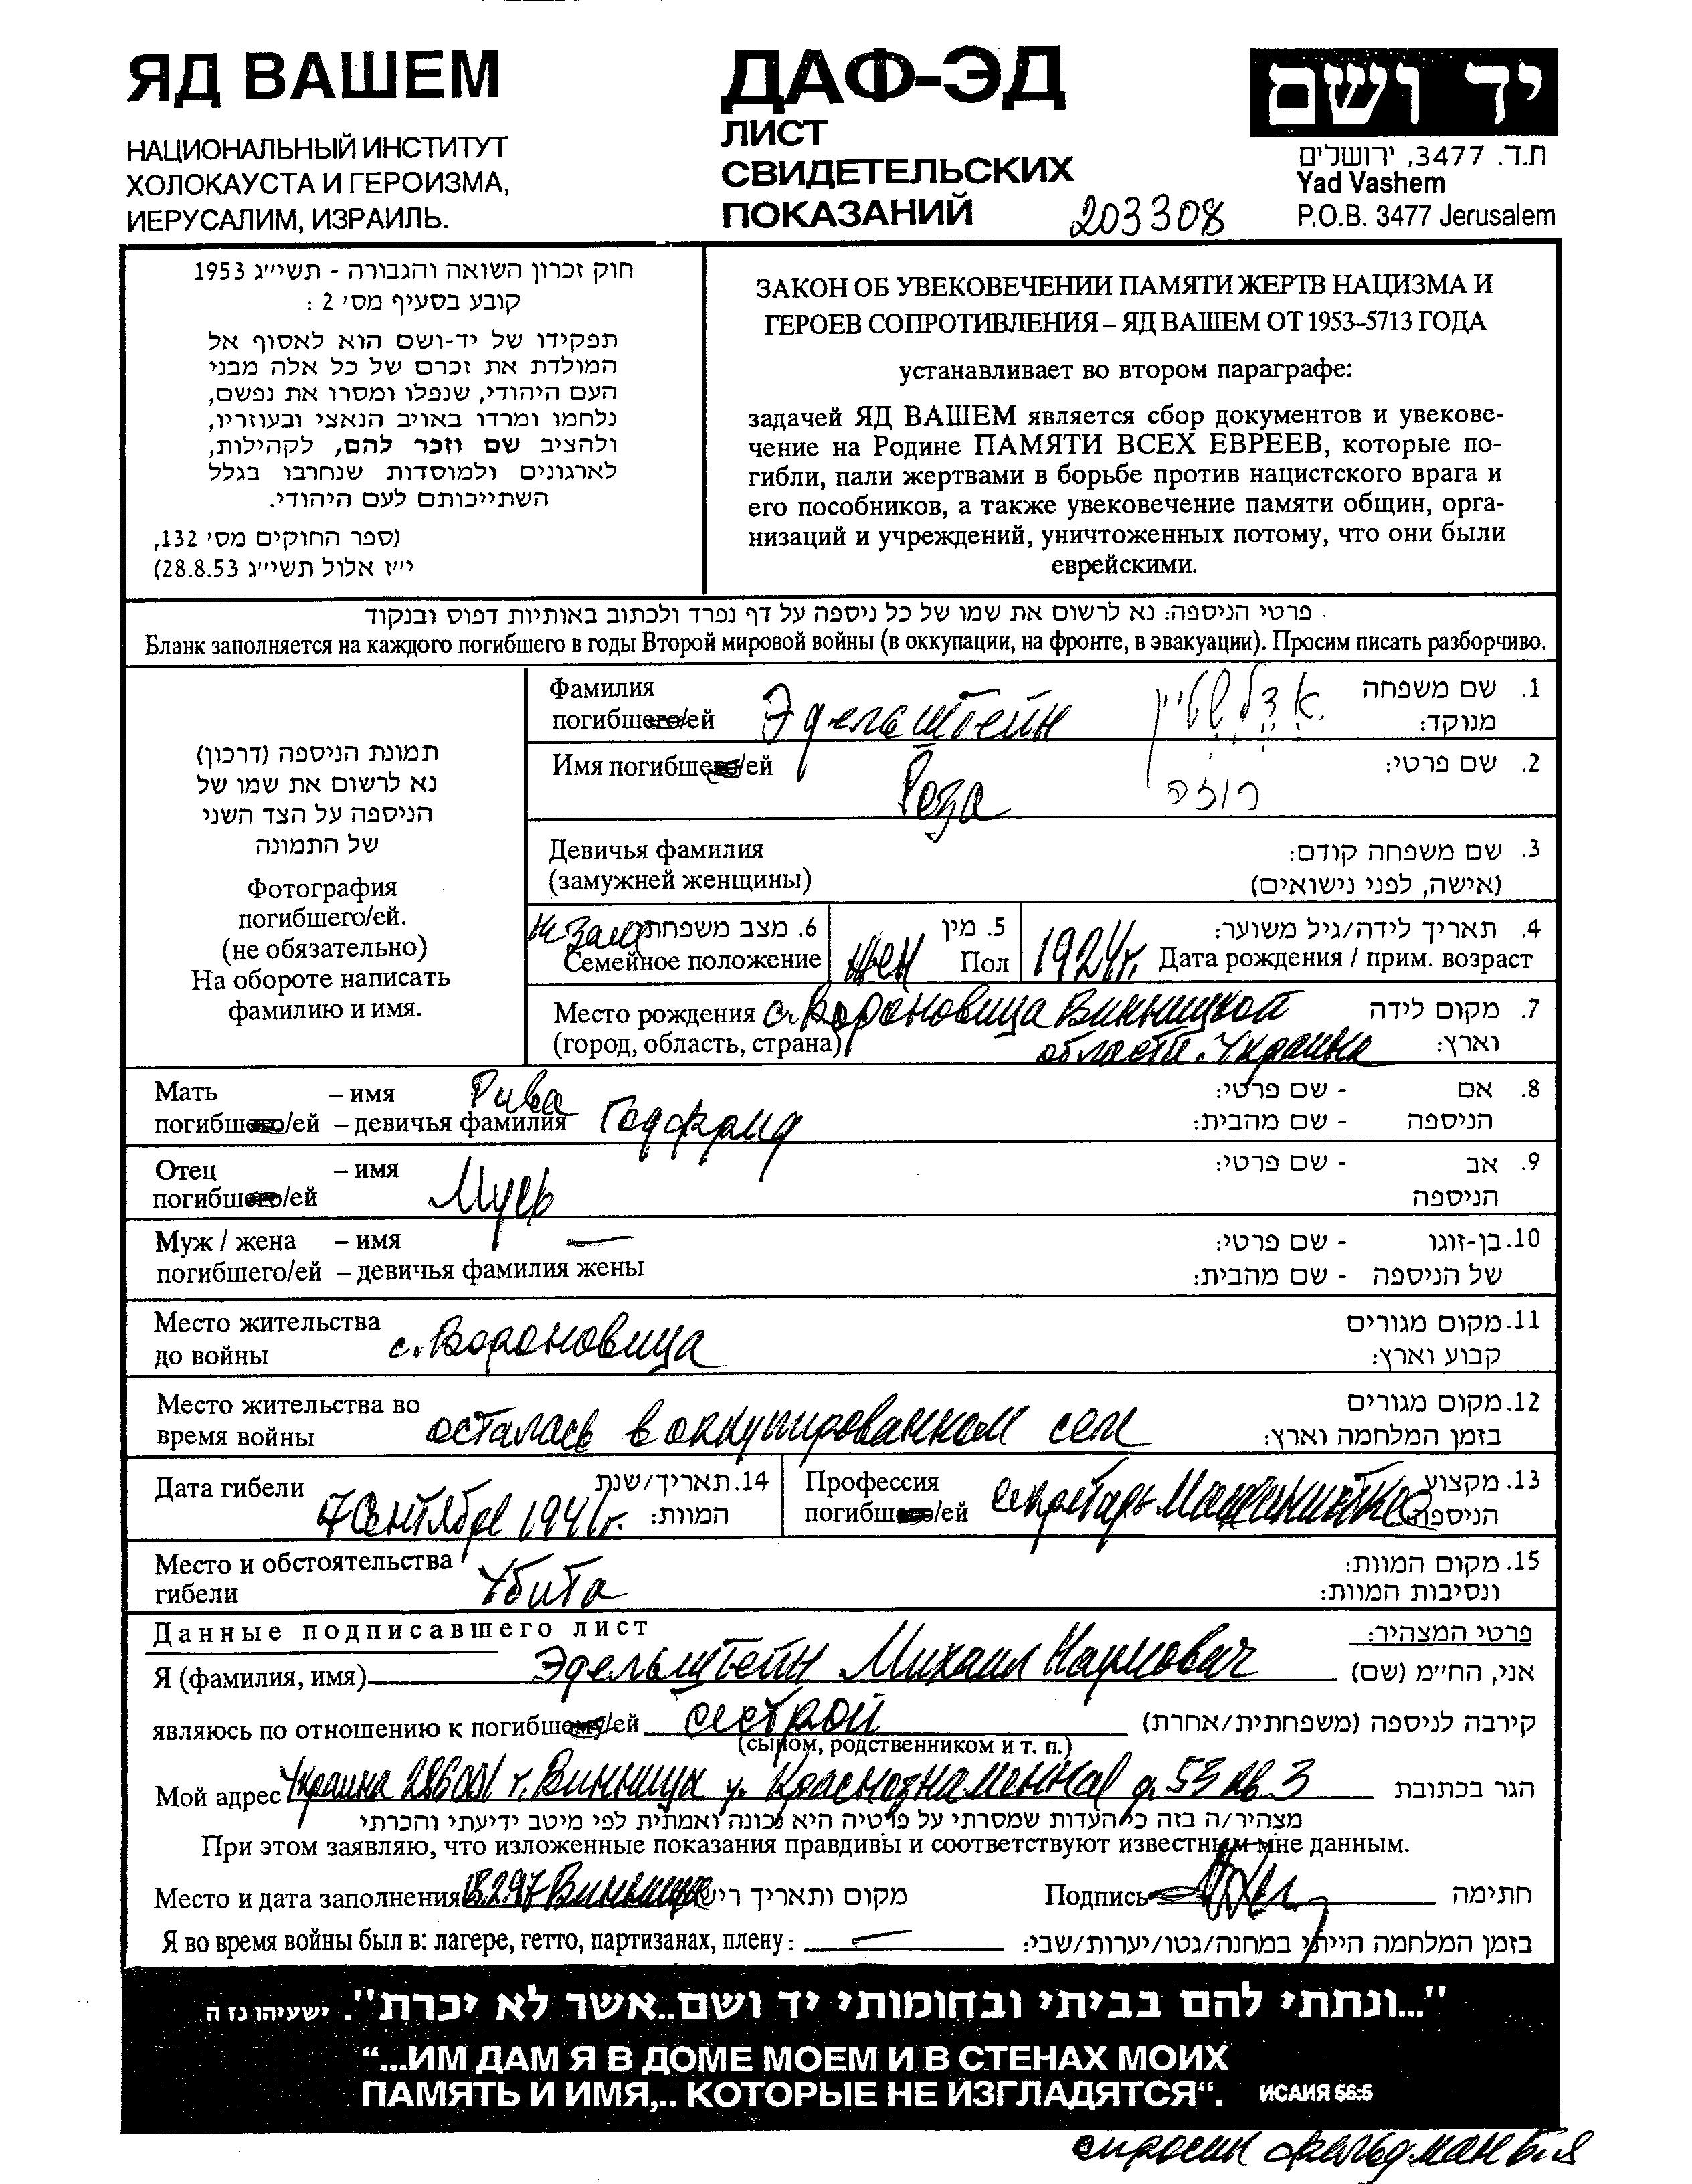 ЯД ВАШЕМ
НАЦИОНАЛЬНЫЙ ИНСТИТУТ
ХОЛОКАУСТА И ГЕРОИЗМА,
ИЕРУСАЛИМ, ИЗРАИЛЬ.
ДАФ-ЭД
ЛИСТ
СВИДЕТЕЛЬСКИХ
ПОКАЗАНИЙ 203308
יד ושם
ת.ד. 3477, ירושלים
Yad Vashem
P.O.B. 3477 Jerusalem
חוק זכרון השואה והגבורה - תשי״ג 1953
קובע בסעיף מס׳ 2 :
תפקידו של יד-ושם הוא לאסוף אל
המולדת את זכרם של כל אלה מבני
העם היהודי, שנפלו ומסרו את נפשם,
נלחמו ומרדו באויב הנאצי ובעוזריו,
ולהציב שם וזכר להם, לקהילות,
לארגונים ולמוסדות שנחרבו בגלל
השתייכותם לעם היהודי.
(ספר החוקים מס׳ 132,
י״ז אלול תשי״ג 28.8.53)
ЗАКОН ОБ УВЕКОВЕЧЕНИИ ПАМЯТИ ЖЕРТВ НАЦИЗМА И
ГЕРОЕВ СОПРОТИВЛЕНИЯ – ЯД ВАШЕМ ОТ 1953–5713 ГОДА
устанавливает во втором параграфе:
задачей ЯД ВАШЕМ является сбор документов и увекове-
чение на Родине ПАМЯТИ ВСЕХ ЕВРЕЕВ, которые по-
гибли, пали жертвами в борьбе против нацистского врага и
его пособников, а также увековечение памяти общин, орга-
низаций и учреждений, уничтоженных потому, что они были
еврейскими.
פרטי הניספה: נא לרשום את שמו של כל ניספה על דף נפרד ולכתוב באותיות דפוס ובנקוד .
Бланк заполняется на каждого погибшего в годы Второй мировой войны (в оккупации, на фронте, в эвакуации). Просим писать разборчиво.
תמונת הניספה (דרכון)
נא לרשום את שמו של
הניספה על הצד השני
של התמונה
Фотография
погибшего/ей.
(не обязательно)
На обороте написать
фамилию и имя.
Фамилия
погибшего/ей Эдельштейн אדלשטיין
1. שם משפחה
מנוקד:
Имя погибшего/ей Роза רוזה 2. שם פרטי:
Девичья фамилия
(замужней женщины)
3. שם משפחה קודם:
(אישה, לפני נישואים)
не зам 6. מצב משפחתי
Семейное положение
жен 5. מין
Пол
1924г. 4. תאריך לידה/גיל משוער:
Дата рождения / прим. возраст
Место рождения с. Вороновица Винницкой
(город, область, страна) области. Украины
7. מקום לידה
וארץ:
Мать – имя Рива
погибшего/ей – девичья фамилия Годфрид
8. אם - שם פרטי:
הניספה - שם מהבית:
Отец – имя
погибшего/ей Мусь
9. אב - שם פרטי:
הניספה
Муж / жена – имя —
погибшего/ей – девичья фамилия жены
10. בן-זוגו - שם פרטי:
של הניספה - שם מהבית:
Место жительства
до войны с. Вороновица
11. מקום מגורים
קבוע וארץ:
Место жительства во
время войны осталась в оккупированном селе
12. מקום מגורים
בזמן המלחמה וארץ:
Дата гибели 7 Сентября 1941г.
14. תאריך/שנת
המוות:
Профессия
погибшего/ей секретарь Машинистка
13. מקצוע
הניספה
Место и обстоятельства
гибели Убита
15. מקום המוות:
ונסיבות המוות:
Данные подписавшего лист פרטי המצהיר:
Я (фамилия, имя) Эдельштейн Михаил Наумович אני, החי״מ (שם)
являюсь по отношению к погибшему/ей сестрой קירבה לניספה (משפחתית/אחרת)
(сыном, родственником и т. п.)
Мой адрес Украина 286001 г. Винница у. Краснознаменная д. 53 кв. 3 הגר בכתובת
מצהיר/ה בזה כי העדות שמסרתי על פרטיה היא נכונה ואמתית לפי מיטב ידיעתי והכרתי
При этом заявляю, что изложенные показания правдивы и соответствуют известным мне данным.
Место и дата заполнения Винница מקום ותאריך רישום Подпись חתימה
Я во время войны был в: лагере, гетто, партизанах, плену : — בזמן המלחמה הייתי במחנה/גטו/יערות/שבי:
"...ונתתי להם בביתי ובחומותי יד ושם..אשר לא יכרת". ישעיהו נז ה
“...ИМ ДАМ Я В ДОМЕ МОЕМ И В СТЕНАХ МОИХ
ПАМЯТЬ И ИМЯ,.. КОТОРЫЕ НЕ ИЗГЛАДЯТСЯ“. ИСАИЯ 56:5